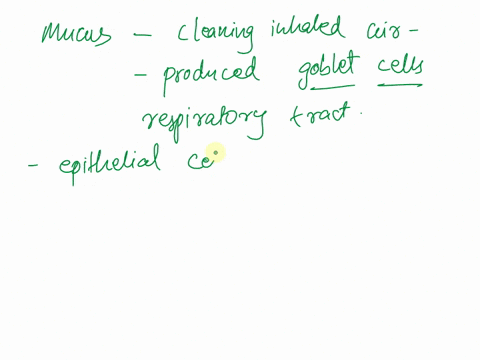 Mucus - cleaning inhaled air -
- produced goblet cells
respiratory tract.
- epithelial ce